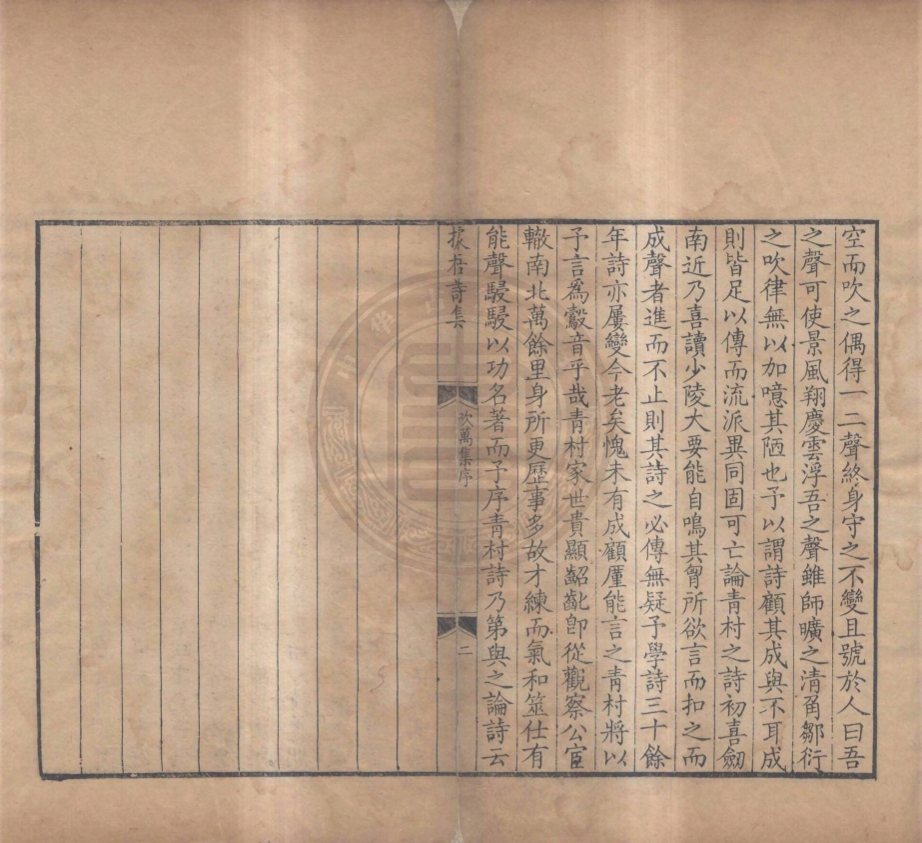 空而吹之偶得一二聲終身守之不變且號於人曰吾
之聲可使景風翔慶雲浮吾之聲雖師曠之清角鄒衍
之吹律無以加噫其陋也予以謂詩顧其成與不耳成
則皆足以傳而流派異同固可亡論青村之詩初喜劒
南近乃喜讀少陵大要能自鳴其胷所欲言而扣之而
成聲者進而不止則其詩之必傳無疑予學詩三十餘
年詩亦屢變今老矣愧未有成顧厪能言之青村將以
予言爲鷇音乎哉青村家世貴顯齠齔卽從觀察公宦
轍南北萬餘里身所更歷事多故才練而氣和筮仕有
能聲駸駸以功名著而予序青村詩乃第與之論詩云
據梧詩集
吹萬集序
二